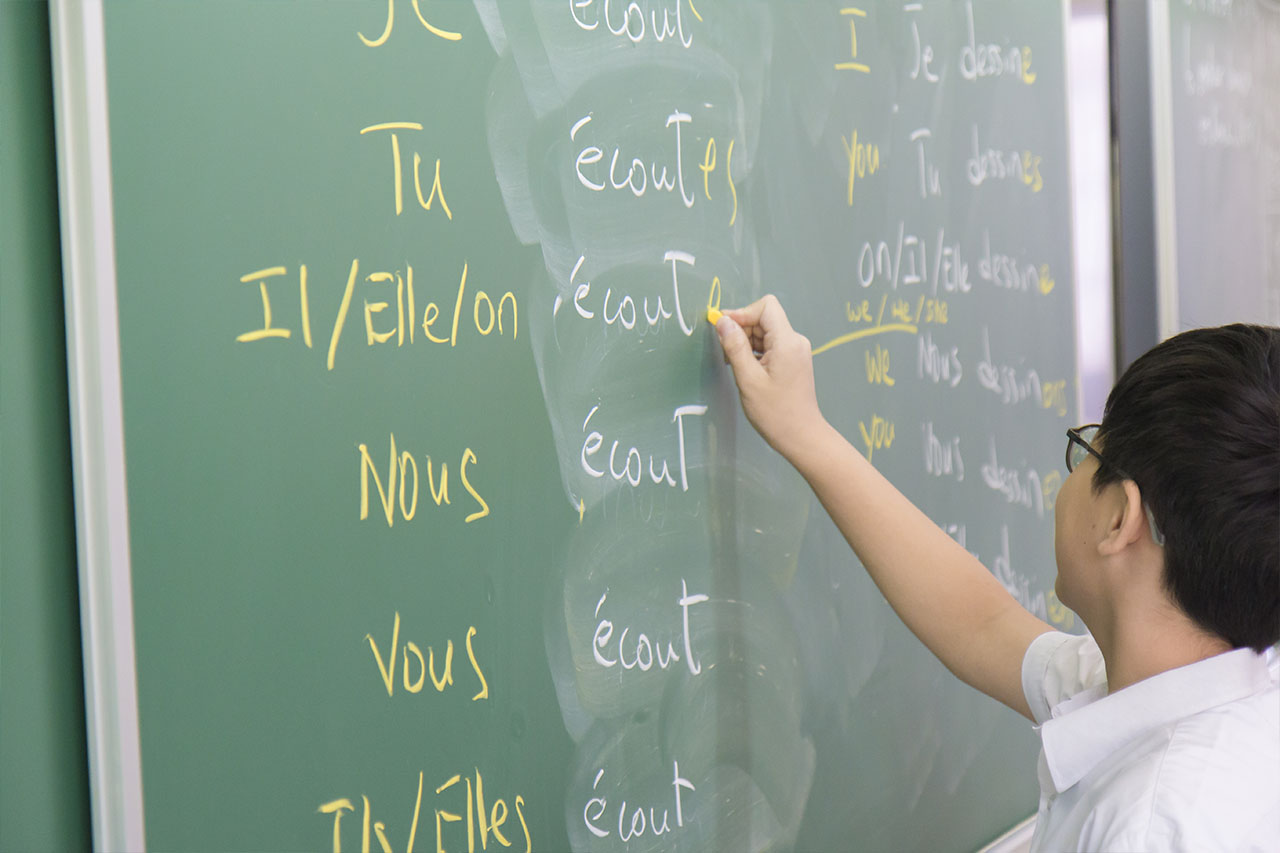 Je écout
Tu écoutes
Il/Elle/on écoute
Nous écout
Vous écout
Ils/Elles écout
I Je dessine
you Tu dessines
on/Il/Elle dessine
we/he/she
we Nous dessinons
you Vous dessinez